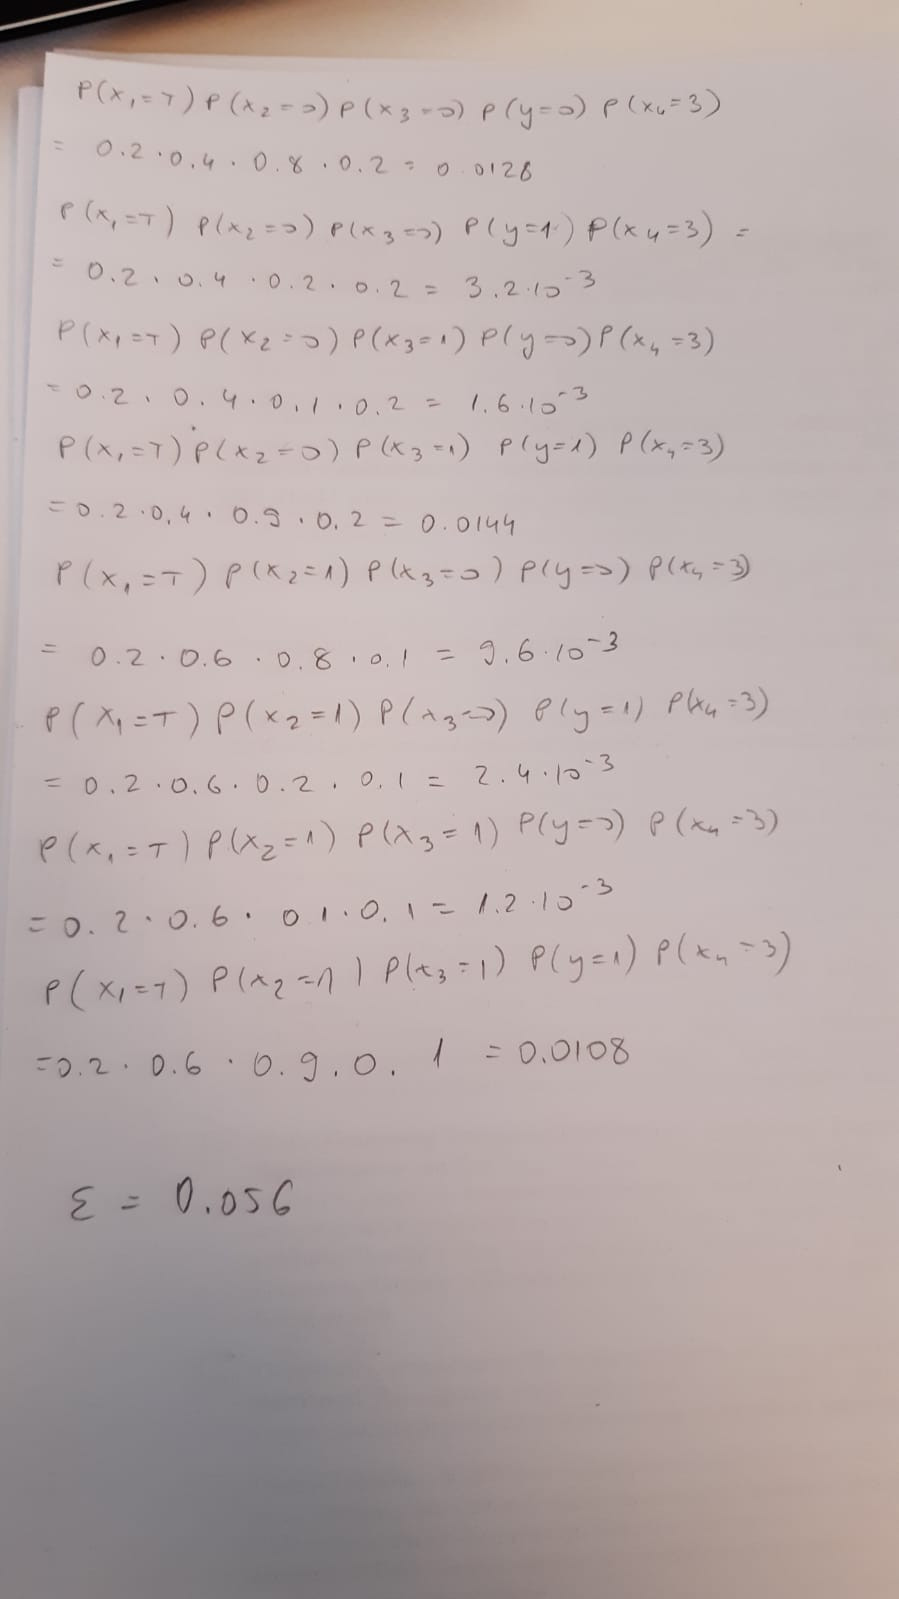 P(x₁=T) P(x₂=0) P(x₃=0) P(y=0) P(x₄=3)
= 0.2 · 0.4 · 0.8 · 0.2 = 0.0128
P(x₁=T) P(x₂=0) P(x₃=0) P(y=1) P(x₄=3) =
= 0.2 · 0.4 · 0.2 · 0.2 = 3.2·10⁻³
P(x₁=T) P(x₂=0) P(x₃=1) P(y=0) P(x₄=3)
= 0.2 · 0.4 · 0.1 · 0.2 = 1.6·10⁻³
P(x₁=T) P(x₂=0) P(x₃=1) P(y=1) P(x₄=3)
= 0.2 · 0.4 · 0.9 · 0.2 = 0.0144
P(x₁=T) P(x₂=1) P(x₃=0) P(y=0) P(x₄=3)
= 0.2 · 0.6 · 0.8 · 0.1 = 9.6·10⁻³
P(x₁=T) P(x₂=1) P(x₃=0) P(y=1) P(x₄=3)
= 0.2 · 0.6 · 0.2 · 0.1 = 2.4·10⁻³
P(x₁=T) P(x₂=1) P(x₃=1) P(y=0) P(x₄=3)
= 0.2 · 0.6 · 0.1 · 0.1 = 1.2·10⁻³
P(x₁=T) P(x₂=1) P(x₃=1) P(y=1) P(x₄=3)
= 0.2 · 0.6 · 0.9 · 0.1 = 0.0108
Σ = 0.056